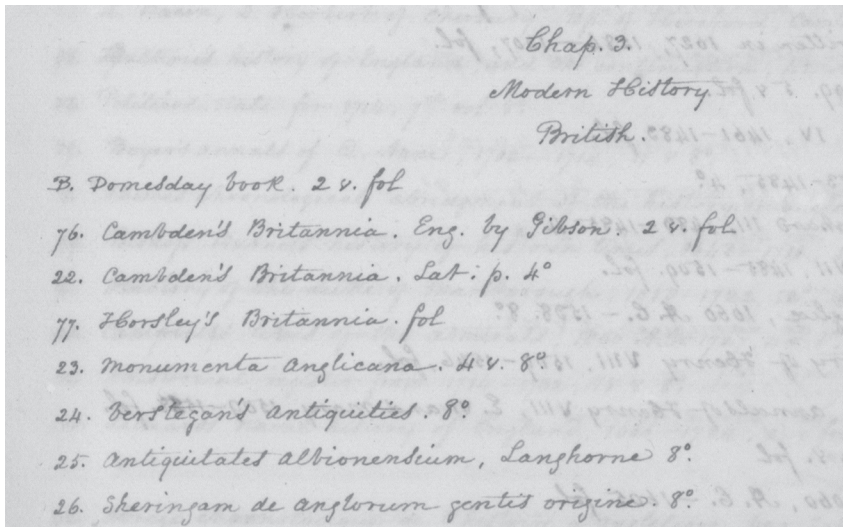 Chap. 3.
Modern History
British.
B. Domesday book. 2 v. fol
76. Cambden's Britannia. Eng. by Gibson. 2 v. fol
22. Cambden's Britannia. Lat. p. 4°
77. Horsley's Britannia. fol
23. Monumenta Anglicana. 4 v. 8°.
24. Verstegan's Antiquities. 8°.
25. Antiquitates Albionensium, Langhorne 8°.
26. Sheringam de Anglorum gentis origine. 8°.